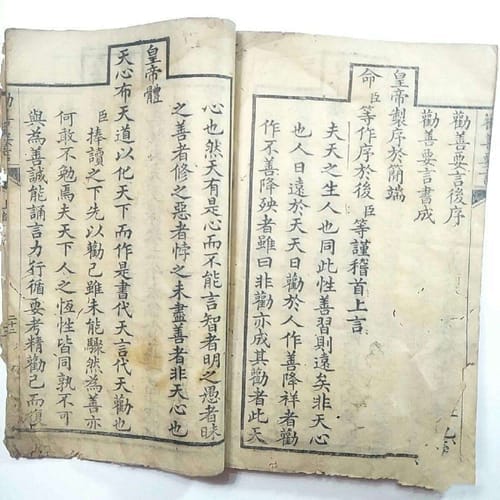 勸善要言後序
勸善要言書成
皇帝製序於簡端
命臣等作序於後臣等謹稽首上言
夫天之生人也同此性善習則遠矣非天心
也人日遠於天天日勸於人作善降祥者勸
作不善降殃者雖曰非勸亦成其勸者此天
心也然天有是心而不能言智者明之愚者昧
之善者修之惡者悖之未盡善者非天心也
皇帝體
天心布天道以化天下而作是書代天言代天勸也
臣捧讀之下先以勸己雖未能驟然為善亦
何敢不勉焉夫天下人之恆性皆同孰不可
與為善誠能誦言力行循要考精勸己而復